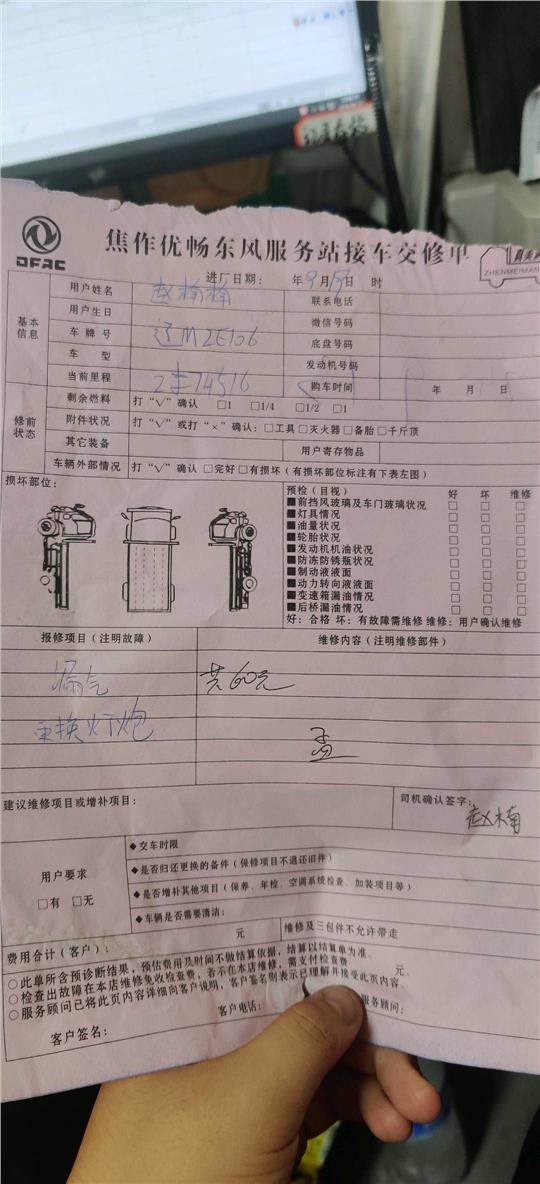 DFAC
焦作优畅东风服务站接车交修单
ZHENMEIMAN
进厂日期： 年9月19日 时
基本信息
用户姓名 赵楠楠 联系电话
用户生日 微信号码
车牌号 辽M2E106 底盘号码
车 型 发动机号码
当前里程 74516 购车时间 年 月 日
修前状态
剩余燃料 打“√”确认 □1 □1/4 □1/2 □1
附件状况 打“√”或打“×”确认：□工具□灭火器□备胎□千斤顶
其它装备 用户寄存物品
车辆外部情况 打“√”确认 □完好□有损坏（有损坏部位标注有下表左图）
损坏部位：
预检（目视） 好 坏 维修
■前挡风玻璃及车门玻璃状况 □ □ □
■灯具情况 □ □ □
■油量状况 □ □ □
■轮胎状况 □ □ □
■发动机机油状况 □ □ □
■防冻防锈瓶状况 □ □ □
■制动液液面 □ □ □
■动力转向液液面 □ □ □
■变速箱漏油情况 □ □ □
■后桥漏油情况 □ □ □
好：合格 坏：有故障需维修 维修：用户确认维修
报修项目（注明故障） 维修内容（注明维修部件）
漏气 共60元
更换灯炮
孟
建议维修项目或增补项目： 司机确认签字：
赵楠
用户要求
□有 □无
◆交车时限
◆是否归还更换的备件（保修项目不退还旧件）
◆是否增补其他项目（保养、年检、空调系统检查、加装项目等）
◆车辆是否需要清洁：
费用合计（客户）： 元 维修及三包件不允许带走
○此单所含预诊断结果，预估费用及时间不做结算依据，结算以结算单为准。
○检查出故障在本店维修免收检查费，若不在本店维修，需支付检查费 元。
○服务顾问已将此页内容详细向客户说明，客户签名则表示已理解并接受此页内容。
客户签名： 客户电话： 服务顾问：